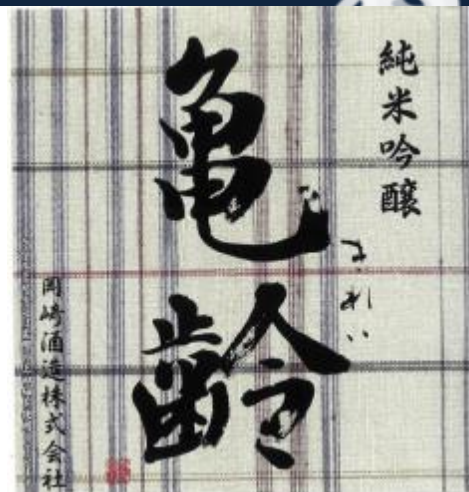 純米吟醸
亀齢
きれい
岡崎酒造株式会社